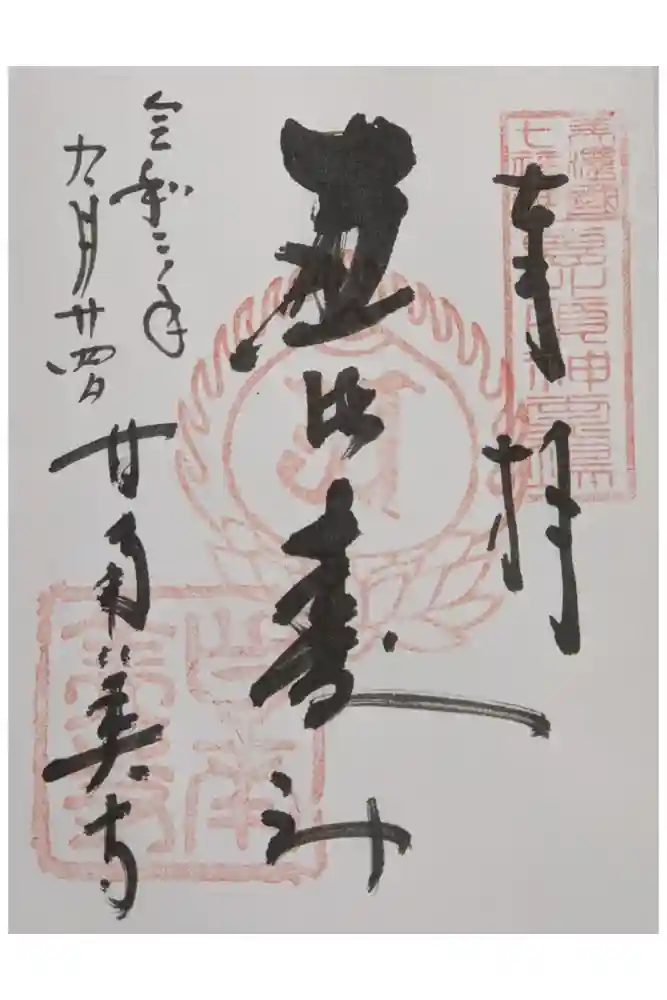 奉拝
美濃國
七福神
恵比寿神
令和二年
九月廿四日
甘南美寺